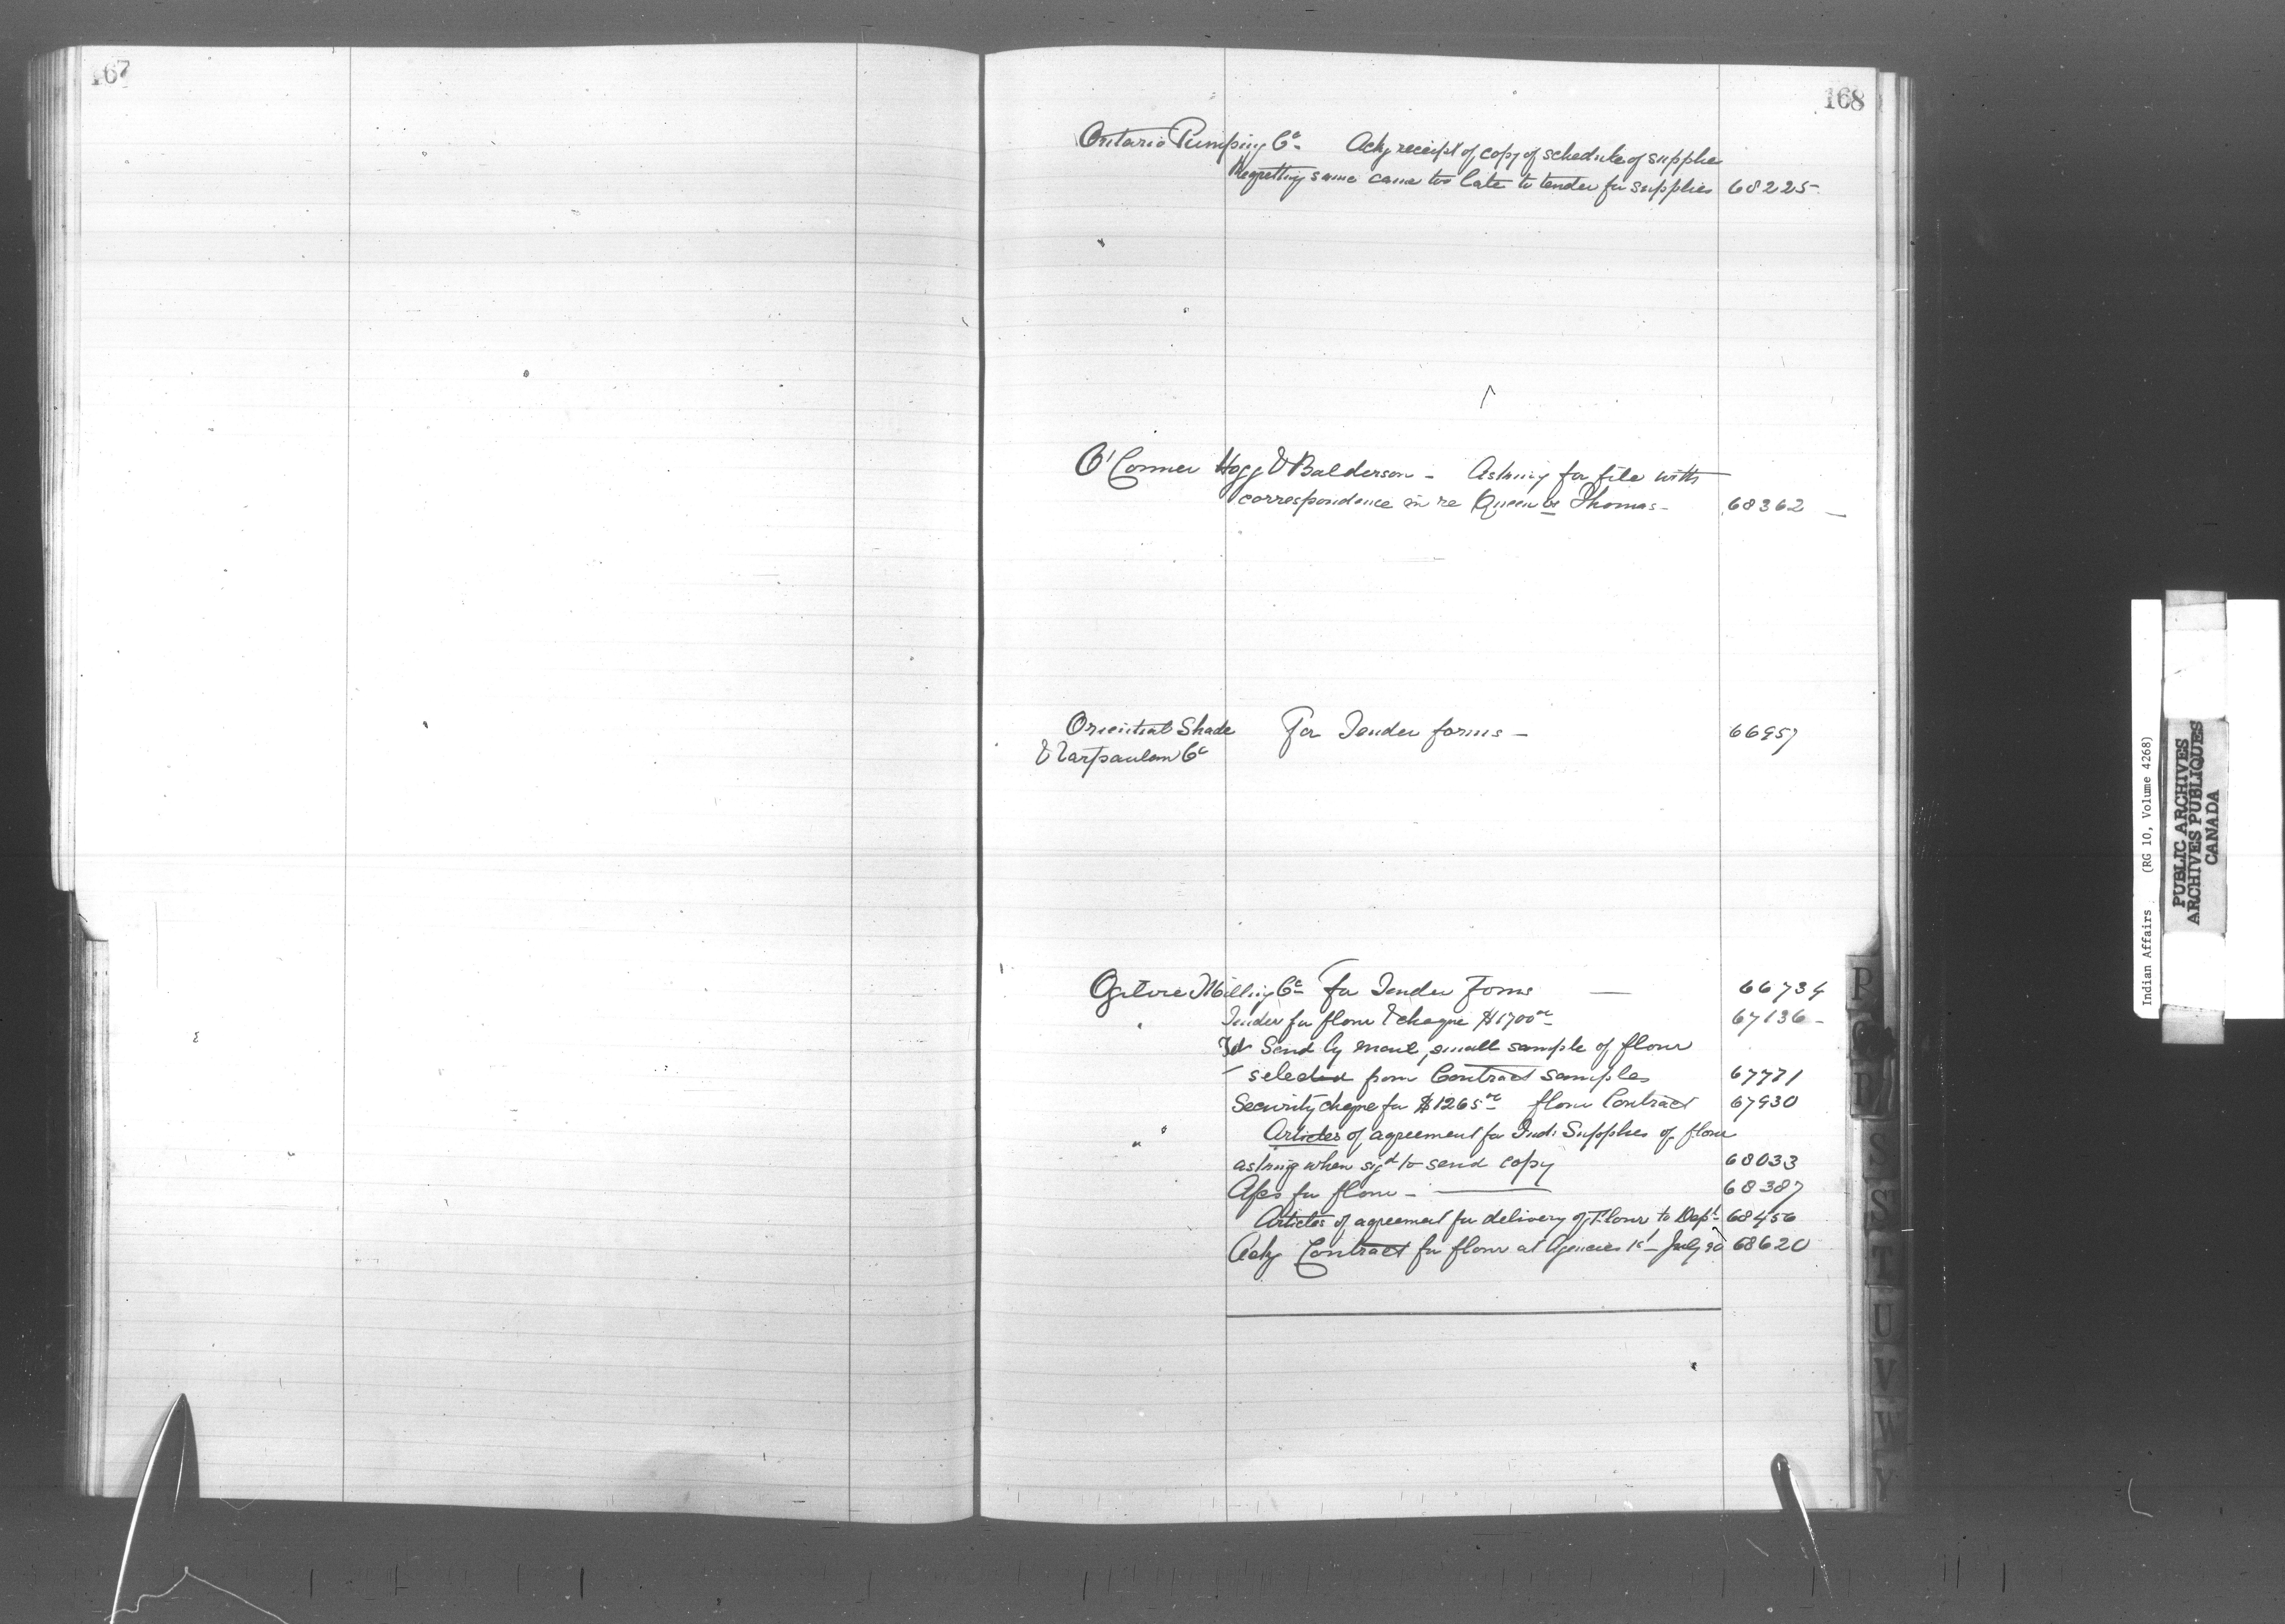 167
168
Ontario Pumping Co. Ackg receipt of copy of schedule of supplies
Regretting same came too late to tender for supplies 68225
O'Connor Hogg & Balderson - Asking for file with
correspondence in re Queen vs Thomas - 68362 -
Oriental Shade For Tender forms - 66957
& Tarpaulom Co
Ogilvie Milling Co For Tender Forms — 66734
" Tender for flour & cheque $1700 00 67136 -
Tel Send by mail, small sample of flour
selected from Contract samples 67771
Security cheque for $1265 00 flour Contract 67930
" " Articles of agreement for Ind: Supplies of flour
asking when sigd to send copy 68033
A/cs for flour - 68387
Articles of agreement for delivery of Flour to Dept 68456
Ackg Contract for flour at Agencies 1st July 90 68620
P
R
S
ST
T
U
V
W
Y
Indian Affairs . (RG 10, Volume 4268)
PUBLIC ARCHIVES
ARCHIVES PUBLIQUES
CANADA